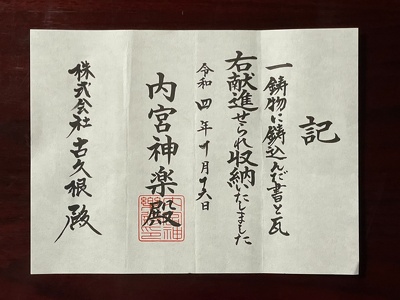 記
一鋳物に鋳込んだ書と瓦
右献進せられ収納いたしました
令和四年十月十六日
内宮神楽殿
株式会社古久根殿